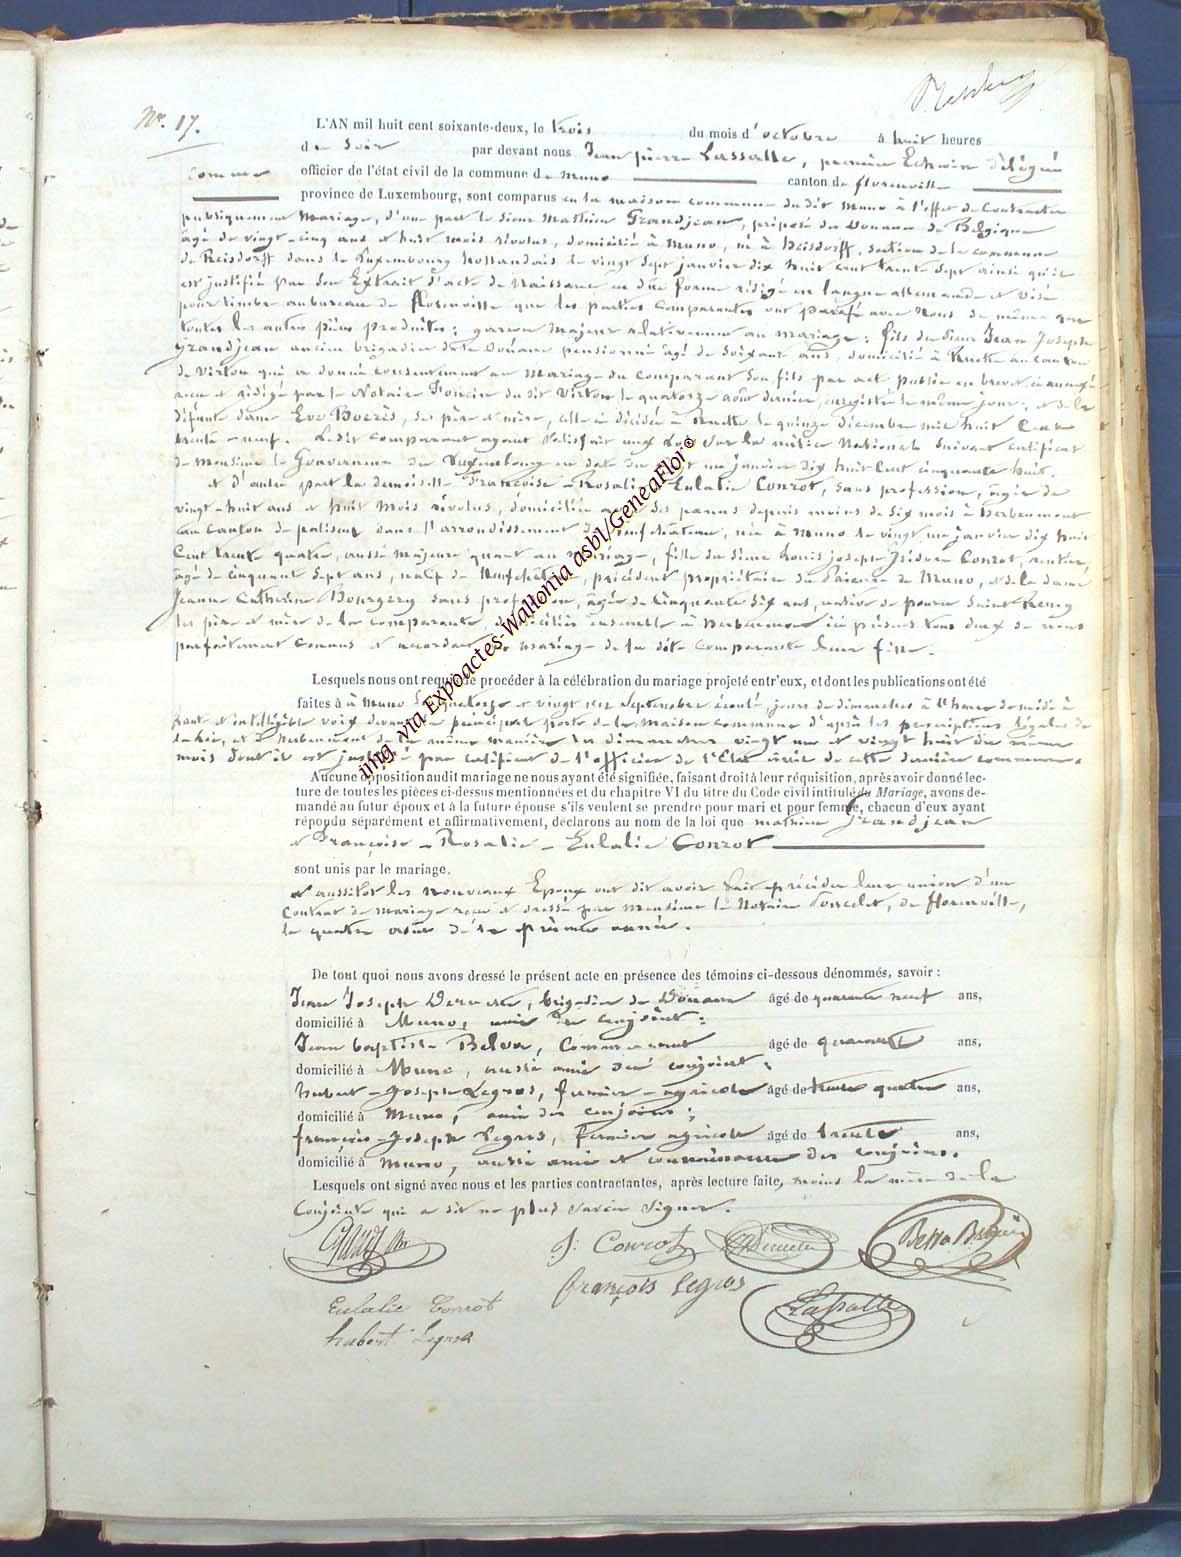 No. 17.
L'AN mil huit cent soixante-deux, le trois du mois d'octobre à huit heures
du soir par devant nous Jean pierre Lassalle, premier Echevin délégué
comme officier de l'état civil de la commune de Muno canton de florenville
province de Luxembourg, sont comparus en la maison commune du dit Muno à l'effet de Contracter
publiquement Mariage, d'une part le sieur Mathieu Grandjean, préposé des Douanes de Belgique
âgé de vingt-cinq ans et huit mois révolus, domicilié à Muno, né à Heisdorff, section de la commune
de Heisdorff dans le Luxembourg hollandais le vingt sept janvier dix huit cent trente sept ainsi qu'il
est justifié par son Extrait d'acte de Naissance en due forme rédigé en langue allemande et visé
pour timbre au bureau de florenville que les parties comparantes ont parafé avec nous de même que
toutes les autres pièces produites; garçon Majeur relativement au mariage; fils du sieur Jean Joseph
Grandjean ancien brigadier de la Douane pensionné âgé de soixante ans, domicilié à Ruette au canton
de Virton qui a donné consentement au Mariage du comparant son fils par acte public en brevet ci annexé
reçu et rédigé par le Notaire du dit Virton le quatorze août dernier, enregistré le même jour, et de la
défunte dame Eve ses père et mère, celle ci décédée à Ruette le quinze décembre mil huit Cent
trente-neuf. Ledit comparant ayant satisfait aux Lois sur la milice Nationale suivant certificat
de Monsieur le Gouverneur du Luxembourg en date du vingt un janvier dix huit Cent cinquante huit.
et d'autre part la demoiselle françoise-Rosalie-Eulalie Conrot, sans profession, âgée de
vingt-huit ans et huit Mois révolus, domiciliée avec ses parens depuis moins de Six mois à herbeumont
au Canton de paliseul dans l'arrondissement de Neufchâteau, née à Muno le vingt un janvier dix huit
Cent trente quatre, aussi majeure quant au Mariage, fille du sieur Louis joseph Isidore Conrot, rentier,
âgé de Cinquante Sept ans, natif de Neufchâteau, précédent propriétaire du Prieuré de Muno, et de la dame
Jeanne Catherine Bourgery sans profession, âgée de Cinquante six ans, native de pouru Saint Remy
les père et mère de la comparante, domiciliés ensemble à herbeumont ici présens tous deux de nous
parfaitement connus et accordant le mariage de la dite comparante leur fille.
Lesquels nous ont requis de procéder à la célébration du mariage projeté entr'eux, et dont les publications ont été
faites à à Muno les quatorze et vingt un Septembre écoulé, jours de dimanches à l'heure de midi à
haute et intelligible voix devant la principale porte de la Maison commune d'après les prescriptions légales de
la loi, et à herbeumont de la même manière les dimanches vingt un et vingt huit du même
mois dont il est justifié par certificat de l'officier de l'Etat civil de cette dernière commune.
Aucune opposition audit mariage ne nous ayant été signifiée, faisant droit à leur réquisition, après avoir donné lec-
ture de toutes les pièces ci-dessus mentionnées et du chapitre VI du titre du Code civil intitulé du Mariage, avons de-
mandé au futur époux et à la future épouse s'ils veulent se prendre pour mari et pour femme, chacun d'eux ayant
répondu séparément et affirmativement, déclarons au nom de la loi que mathieu Grandjean
et Françoise-Rosalie-Eulalie Conrot
sont unis par le mariage.
et aussitôt les nouveaux Epoux ont dit avoir fait précéder leur union d'un
Contrat de Mariage reçu et dressé par Monsieur le Notaire Poncelet, de florenville,
le quatre août de la présente année.
De tout quoi nous avons dressé le présent acte en présence des témoins ci-dessous dénommés, savoir :
Jean Joseph brigadier de Douane âgé de quarante neuf ans,
domicilié à Muno, ami du conjoint;
Jean baptiste Belva, Commercant âgé de quarante ans,
domicilié à Muno, aussi ami du conjoint;
hubert-Joseph Legros, fermier-agricole âgé de trente quatre ans,
domicilié à Muno, ami des conjoins;
françois-Joseph Legros, fermier agricole âgé de trente ans,
domicilié à Muno, aussi ami et connaissance des conjoins.
Lesquels ont signé avec nous et les parties contractantes, après lecture faite, moins la mère de la
Conjointe qui a dit ne plus savoir signer.
J: Conrot
françois Legros
Eulalie Conrot
Lassalle
hubert Legros
img. via Expoactes-Wallonia asbl/GeneaFlor©